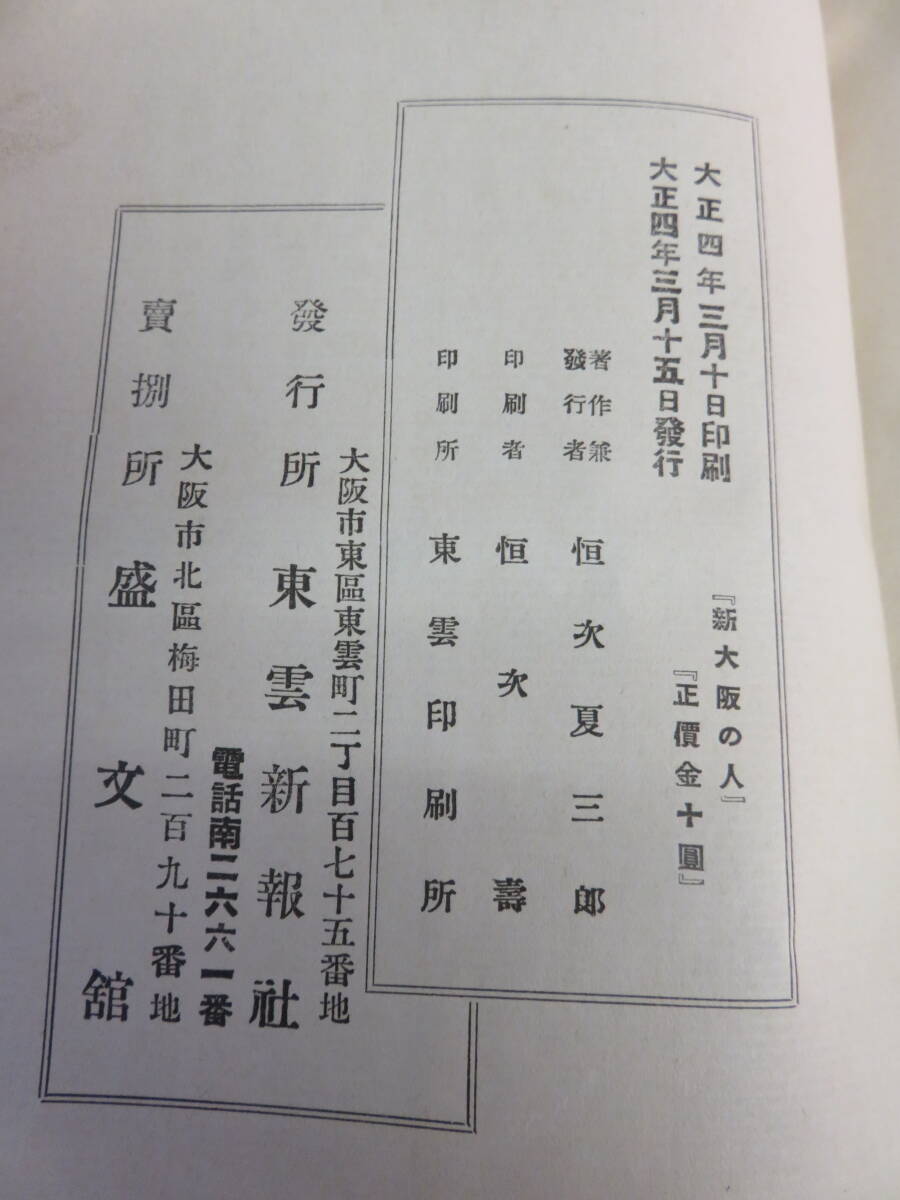 大正四年三月十日印刷
大正四年三月十五日發行
『新大阪の人』
『正價金十圓』
著作兼
發行者 恒次夏三郎
印刷者 恒次壽
印刷所 東雲印刷所
大阪市東區東雲町二丁目百七十五番地
發行所 東雲新報社
電話南二六六一番
大阪市北區梅田町二百九十番地
賣捌所 盛文舘